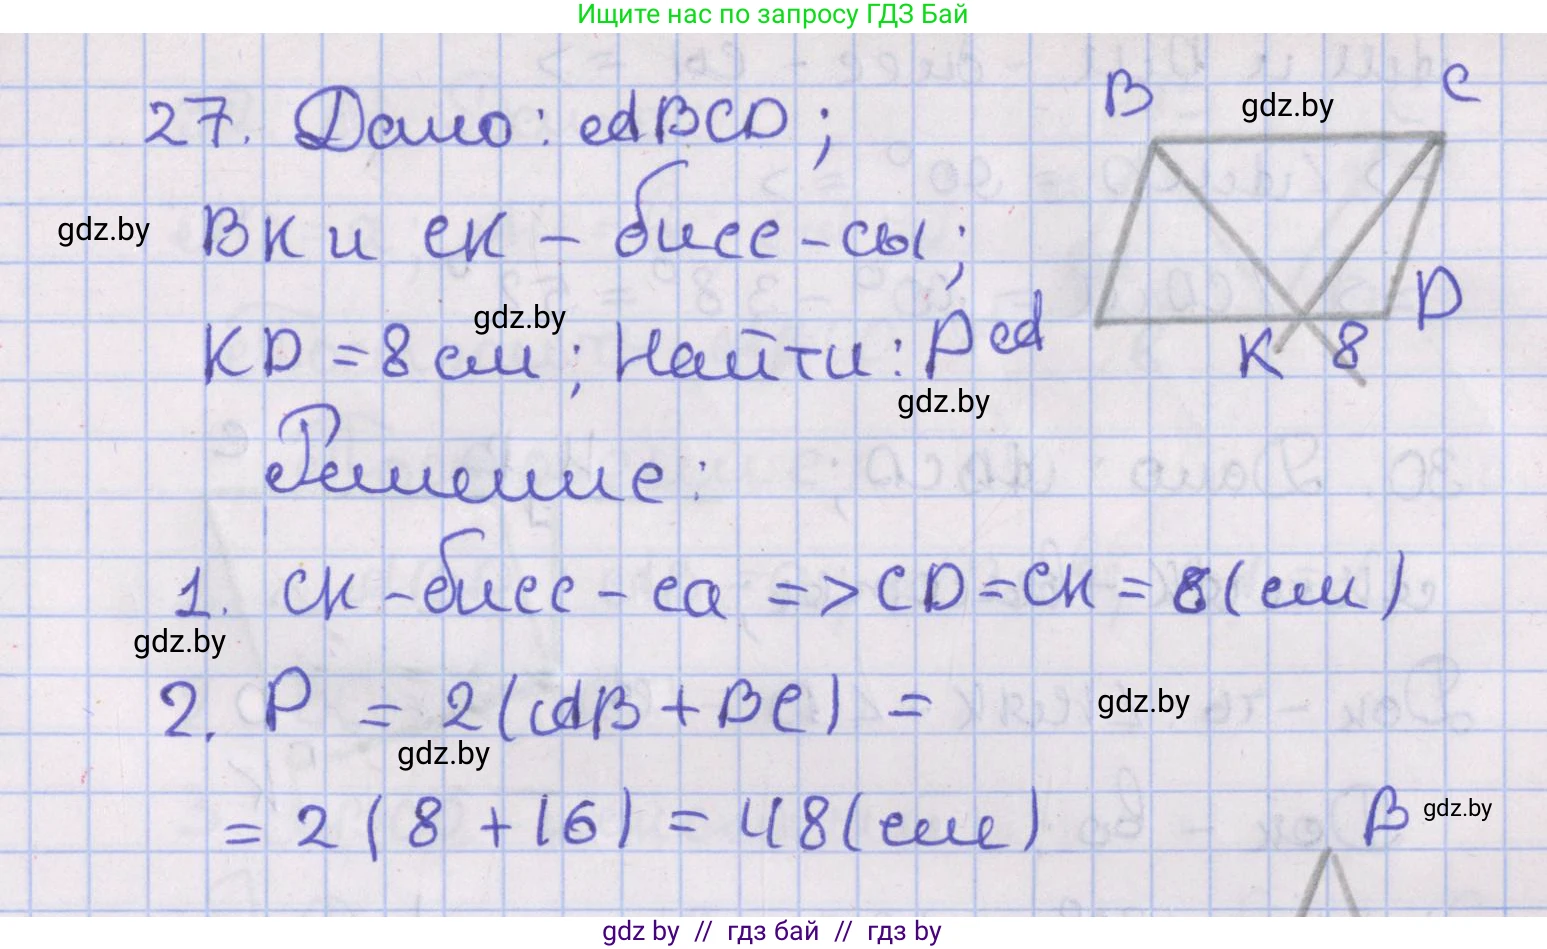 Ищите нас по запросу ГДЗ Бай
27. Дано: ABCD;
BK и CK - бисс-сы;
KD = 8 см; Найти: P A
Решение:
1. CK - бисс-са => CD = CK = 8 (см)
2. P = 2(AB + BC) =
= 2(8 + 16) = 48 (см)
B
C
D
K
8
B
gdz.by
gdz.by
gdz.by
gdz.by
gdz.by
gdz.by
gdz.by
gdz.by
gdz by // гдз бай // гдз by